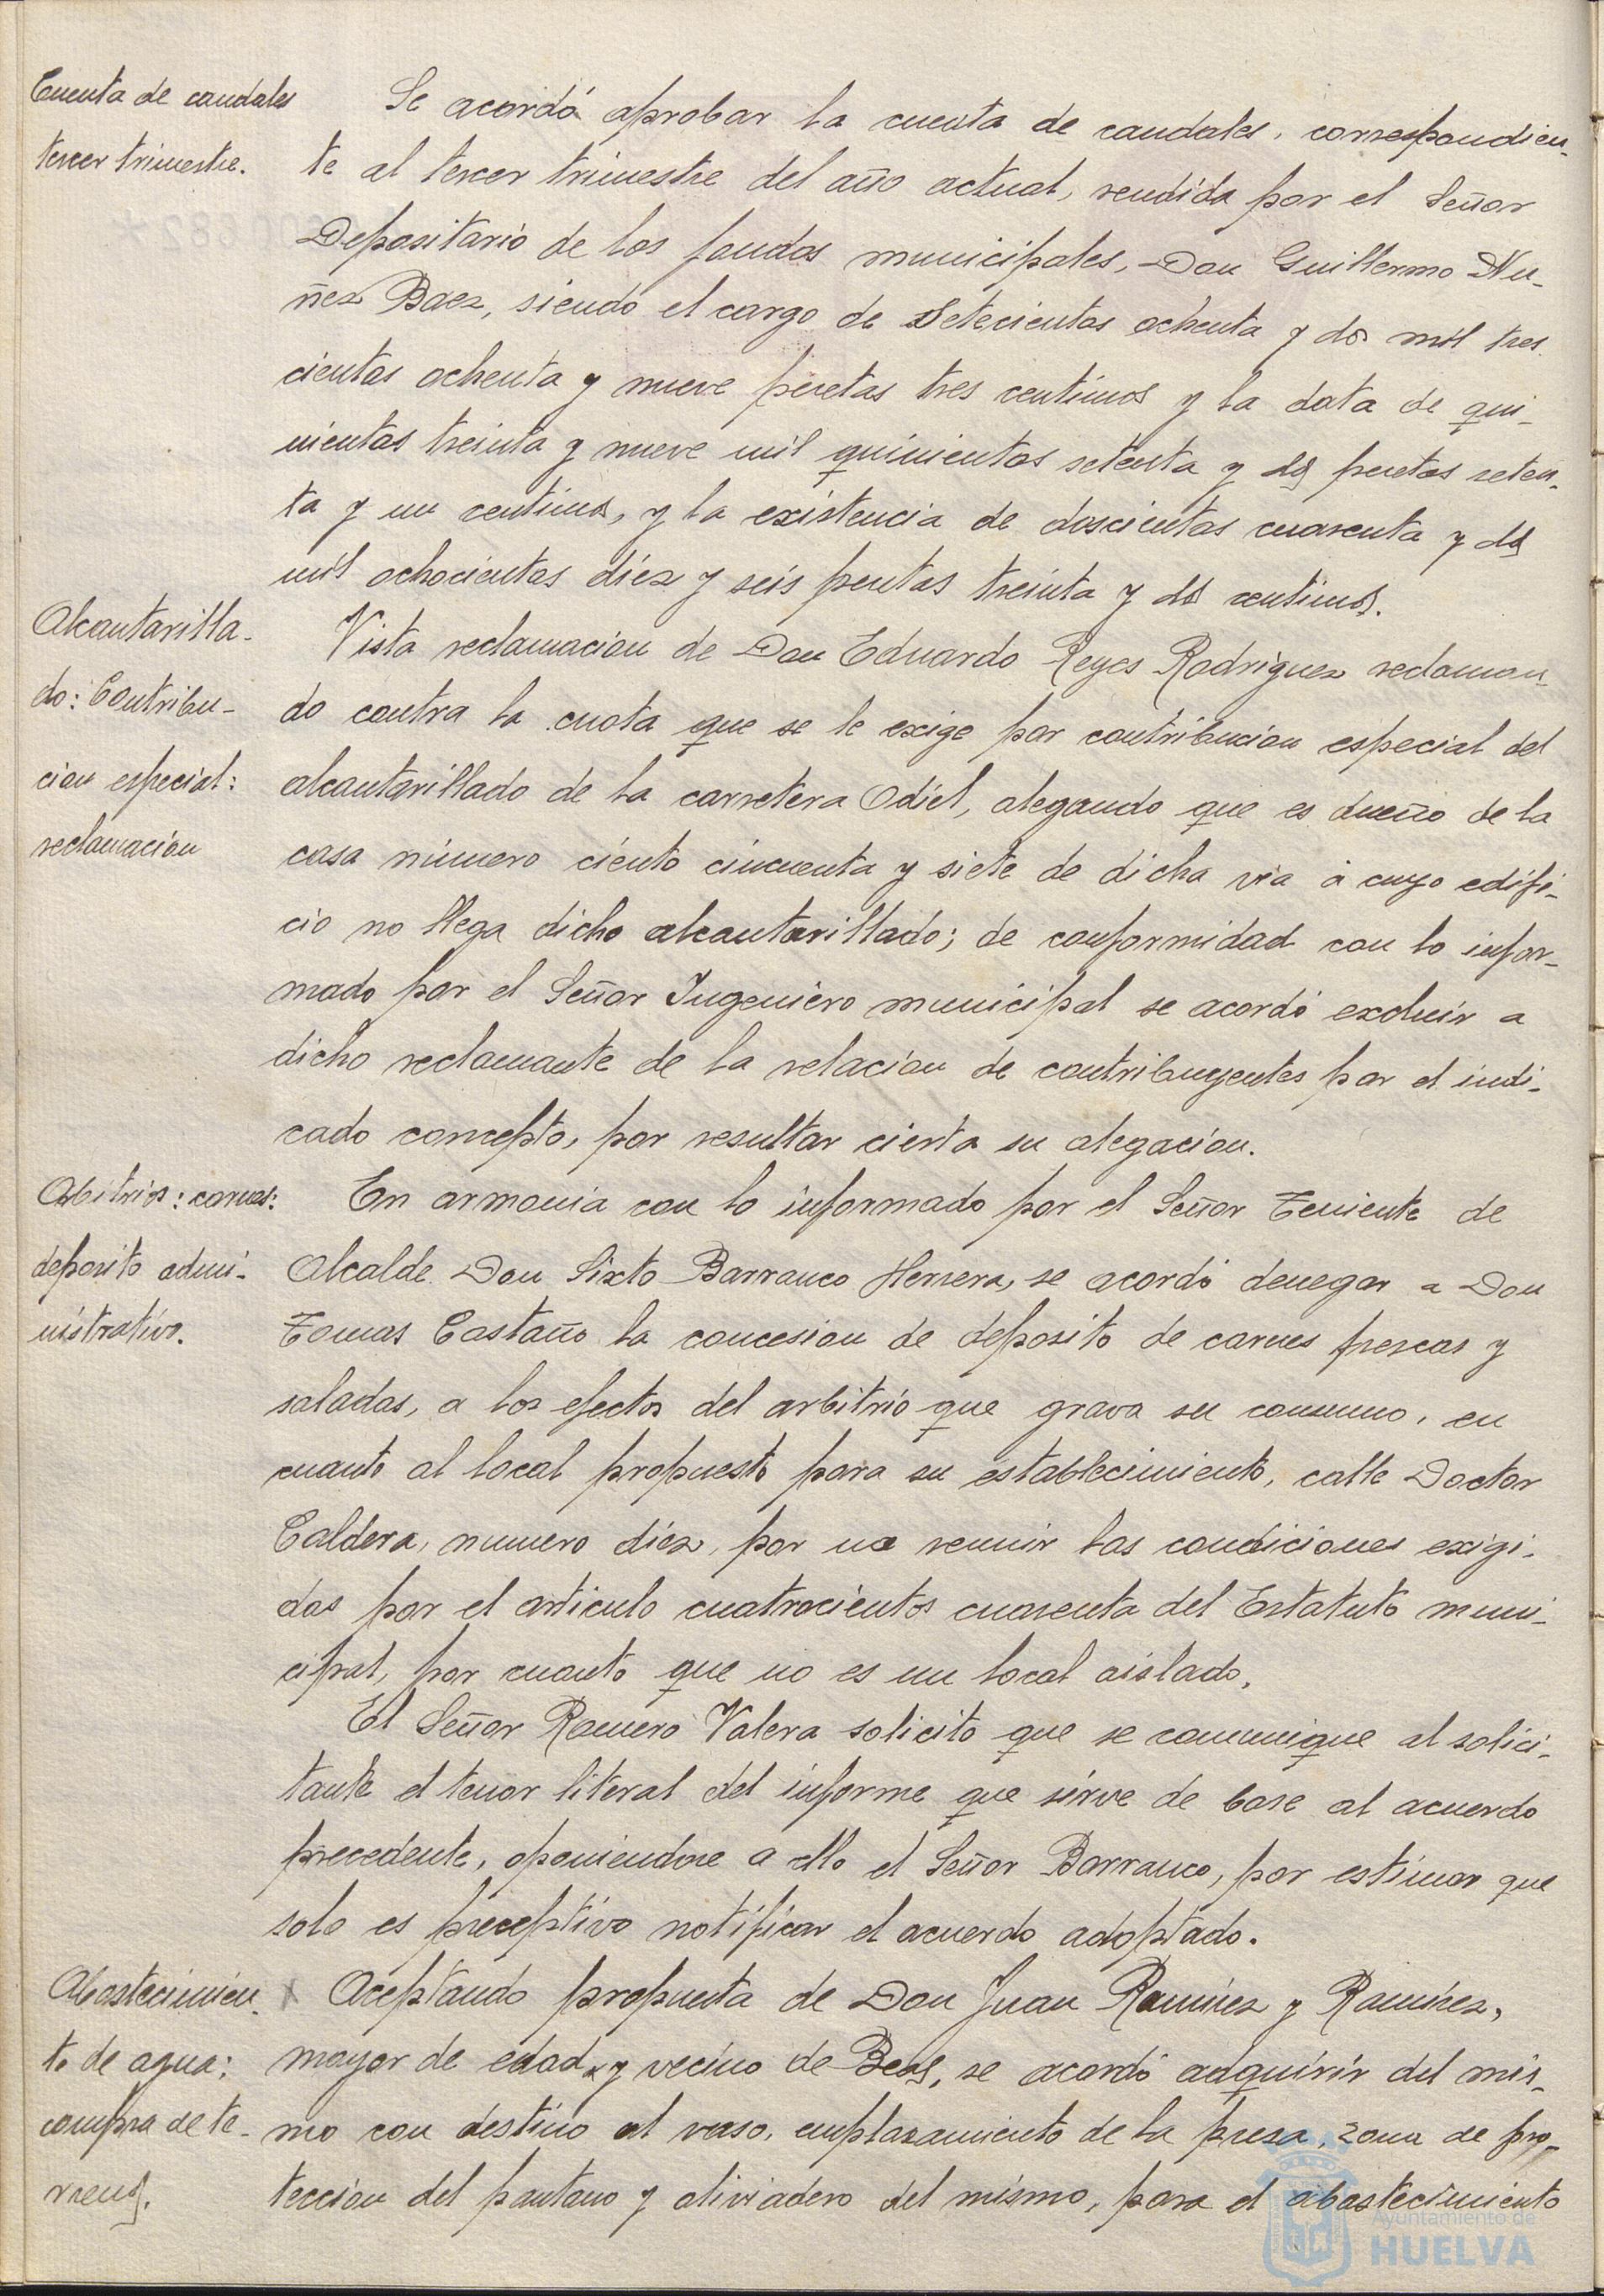 Cuenta de caudales
tercer trimestre.
Se acordó aprobar la cuenta de caudales, correspondien-
te al tercer trimestre del año actual, rendida por el Señor
Depositario de los fondos municipales, Don Guillermo Nu-
ñez Baez, siendo el cargo de Setecientas ochenta y dos mil tres
cientas ochenta y nueve pesetas tres centimos y la data de qui-
nientas treinta y nueve mil quinientas setenta y dos pesetas seten-
ta y un centimos, y la existencia de doscientas cuarenta y dos
mil ochocientas diez y seis pesetas treinta y dos centimos.
Alcantarilla-
do: Contribu-
cion especial:
reclamación
Vista reclamacion de Don Eduardo Reyes Rodriguez reclaman-
do contra la cuota que se le exige por contribucion especial del
alcantarillado de la carretera Odiel, alegando que es dueño de la
casa número ciento cincuenta y siete de dicha via á cuyo edifi-
cio no llega dicho alcantarillado; de conformidad con lo infor-
mado por el Señor Ingeniero municipal se acordó excluir a
dicho reclamante de la relacion de contribuyentes por el indi-
cado concepto, por resultar cierta su alegacion.
Arbitrios: carnes:
deposito admi-
nistrativo.
En armonia con lo informado por el Señor Teniente de
Alcalde Don Sixto Barranco Herrera, se acordó denegar a Don
Tomas Castaño la concesion de deposito de carnes frescas y
saladas, a los efectos del arbitrio que grava su consumo, en
cuanto al local propuesto para su establecimiento, calle Doctor
Caldera, numero diez, por no reunir las condiciones exigi-
das por el articulo cuatrocientos cuarenta del Estatuto muni-
cipal, por cuanto que no es un local aislado.
El Señor Romero Valera solicito que se comunique al solici-
tante el tenor literal del informe que sirve de base al acuerdo
precedente, oponiendose a ello el Señor Barranco, por estimar que
solo es preceptivo notificar el acuerdo adoptado.
Abastecimien-
to de agua:
compra de te-
rrenos.
X Aceptando propuesta de Don Juan Ramirez y Ramirez,
mayor de edad y vecino de Beas, se acordó adquirir del mis-
mo con destino al vaso, emplazamiento de la presa, zona de pro-
teccion del pantano y aliviadero del mismo, para el abastecimiento
Ayuntamiento de
HUELVA